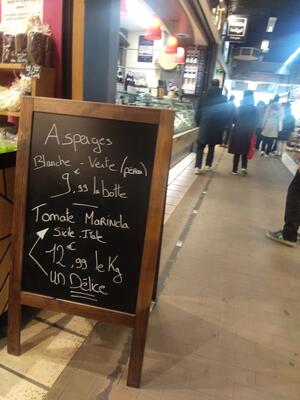 Asperges
Blanche - Verte (pérou)
9€,99 la botte
Tomate Marinda
Sicile-Italie
12€,99 le Kg
un Délice